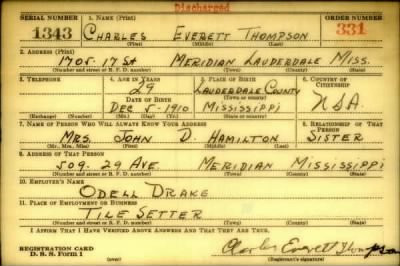 Discharged
SERIAL NUMBER 1. NAME (Print) ORDER NUMBER
1343 CHARLES EVERETT THOMPSON 331
(First) (Middle) (Last)
2. ADDRESS (Print)
1705-17 St MERIDIAN LAUDERDALE MISS.
(Number and street or R. F. D. number) (Town) (County) (State)
3. TELEPHONE 4. AGE IN YEARS 5. PLACE OF BIRTH 6. COUNTRY OF CITIZENSHIP
29 LAUDERDALE COUNTY
DATE OF BIRTH (Town or county)
DEC 5-1910 MISSISSIPPI USA
(Exchange) (Number) (Mo.) (Day) (Yr.) (State or country)
7. NAME OF PERSON WHO WILL ALWAYS KNOW YOUR ADDRESS 8. RELATIONSHIP OF THAT PERSON
MRS. JOHN D. HAMILTON SISTER
(Mr., Mrs., Miss) (First) (Middle) (Last)
9. ADDRESS OF THAT PERSON
509-29 AVE. MERIDIAN MISSISSIPPI
(Number and street or R. F. D. number) (Town) (County) (State)
10. EMPLOYER'S NAME
ODELL DRAKE
11. PLACE OF EMPLOYMENT OR BUSINESS
TILE SETTER
(Number and street or R. F. D. number) (Town) (County) (State)
I AFFIRM THAT I HAVE VERIFIED ABOVE ANSWERS AND THAT THEY ARE TRUE.
REGISTRATION CARD
D. S. S. Form 1
Charles Everett Thompson
(Registrant's signature)